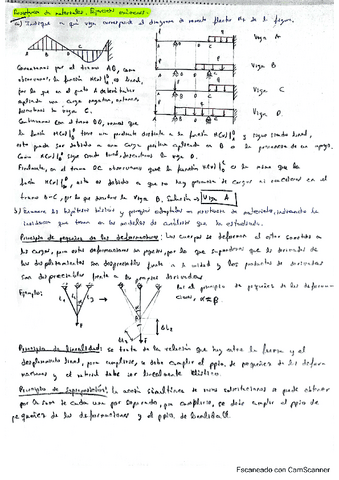 Resistencia de materiales. Ejercicios exámenes.
a) Indique a qué viga corresponde el diagrama de momento flector Mz de la figura.
A B D C
Viga A
Viga B
Viga C
Viga D.
Comenzamos por el tramo AB, como
observamos, la función M(x) es lineal,
por lo que en el punto A deberá haber
aplicada una carga negativa, entonces
descartamos la viga C.
Continuamos con el tramo BD, vemos que
la función M(x) tiene una pendiente distinta a la función M(x) y sigue siendo lineal,
esto puede ser debido a una carga positiva aplicada en B o la presencia de un apoyo.
Como M(x) sigue siendo lineal, descartamos la viga D.
Finalmente, en el tramo DC observamos que la función M(x) no es la misma que la
función M(x), esto es debido a que no hay presencia de cargas ni
tramo B-C, por lo que descarto la viga B. Solución es Viga A
b) Enumera las hipótesis básicas y principios adoptados en resistencia de materiales, indicando la
incidencia que tienen en los modelos de análisis que ha estudiado.
Principio de pequeñez de las deformaciones: Los cuerpos se deforman al estar sometidos a
las cargas, pero estas deformaciones son pequeñas, por lo que suponemos que las derivadas de
los desplazamientos son despreciables frente a la unidad y los productos de derivadas
son despreciables frente a las propias derivadas
Ejemplo:
L1 L2
P
α β
ΔL2
Por el principio
de pequeñez de las deforma-
ciones, α≈β.
Principio de linealidad: se trata de la relación que hay entre la fuerza y el
desplazamiento lineal, para cumplirse, se debe cumplir el ppio. de pequeñez de las deform
aciones y el material debe ser linealmente elástico.
Principio de superposición: la acción simultánea de varias solicitaciones se puede obtener
por la suma de cada una por separado, para cumplirse, se debe cumplir el ppio de
pequeñez de las deformaciones y el ppio de linealidad.
Escaneado con CamScanner